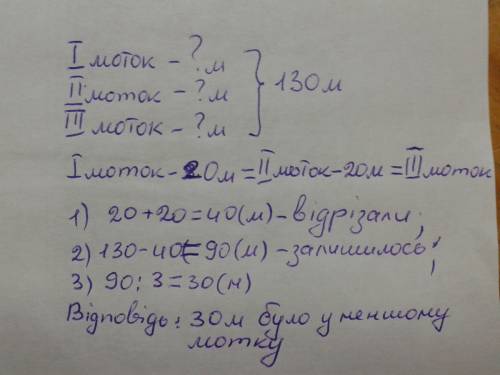 I моток - ? м
II моток - ? м } 130 м
III моток - ? м
I моток - 20м = II моток - 20м = III моток
1) 20 + 20 = 40 (м) - відрізали;
2) 130 - 40 = 90 (м) - залишилось;
3) 90 : 3 = 30 (м)
Відповідь: 30м було у меншому
мотку